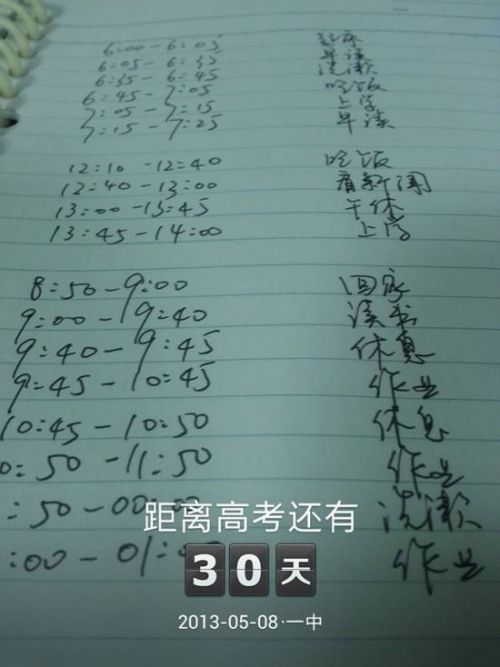 6:00 - 6:05 起床
6:05 - 6:35 早读
6:35 - 6:45 洗漱
6:45 - 7:05 吃饭
7:05 - 7:15 上学
7:15 - 7:25 早读
12:10 - 12:40 吃饭
12:40 - 13:00 看新闻
13:00 - 13:45 午休
13:45 - 14:00 上学
8:50 - 9:00 回家
9:00 - 9:40 读书
9:40 - 9:45 休息
9:45 - 10:45 作业
10:45 - 10:50 休息
0:50 - 11:50 作业
:50 - 00:00 洗漱
:00 - 01: 作业
距离高考还有
30天
2013-05-08·一中